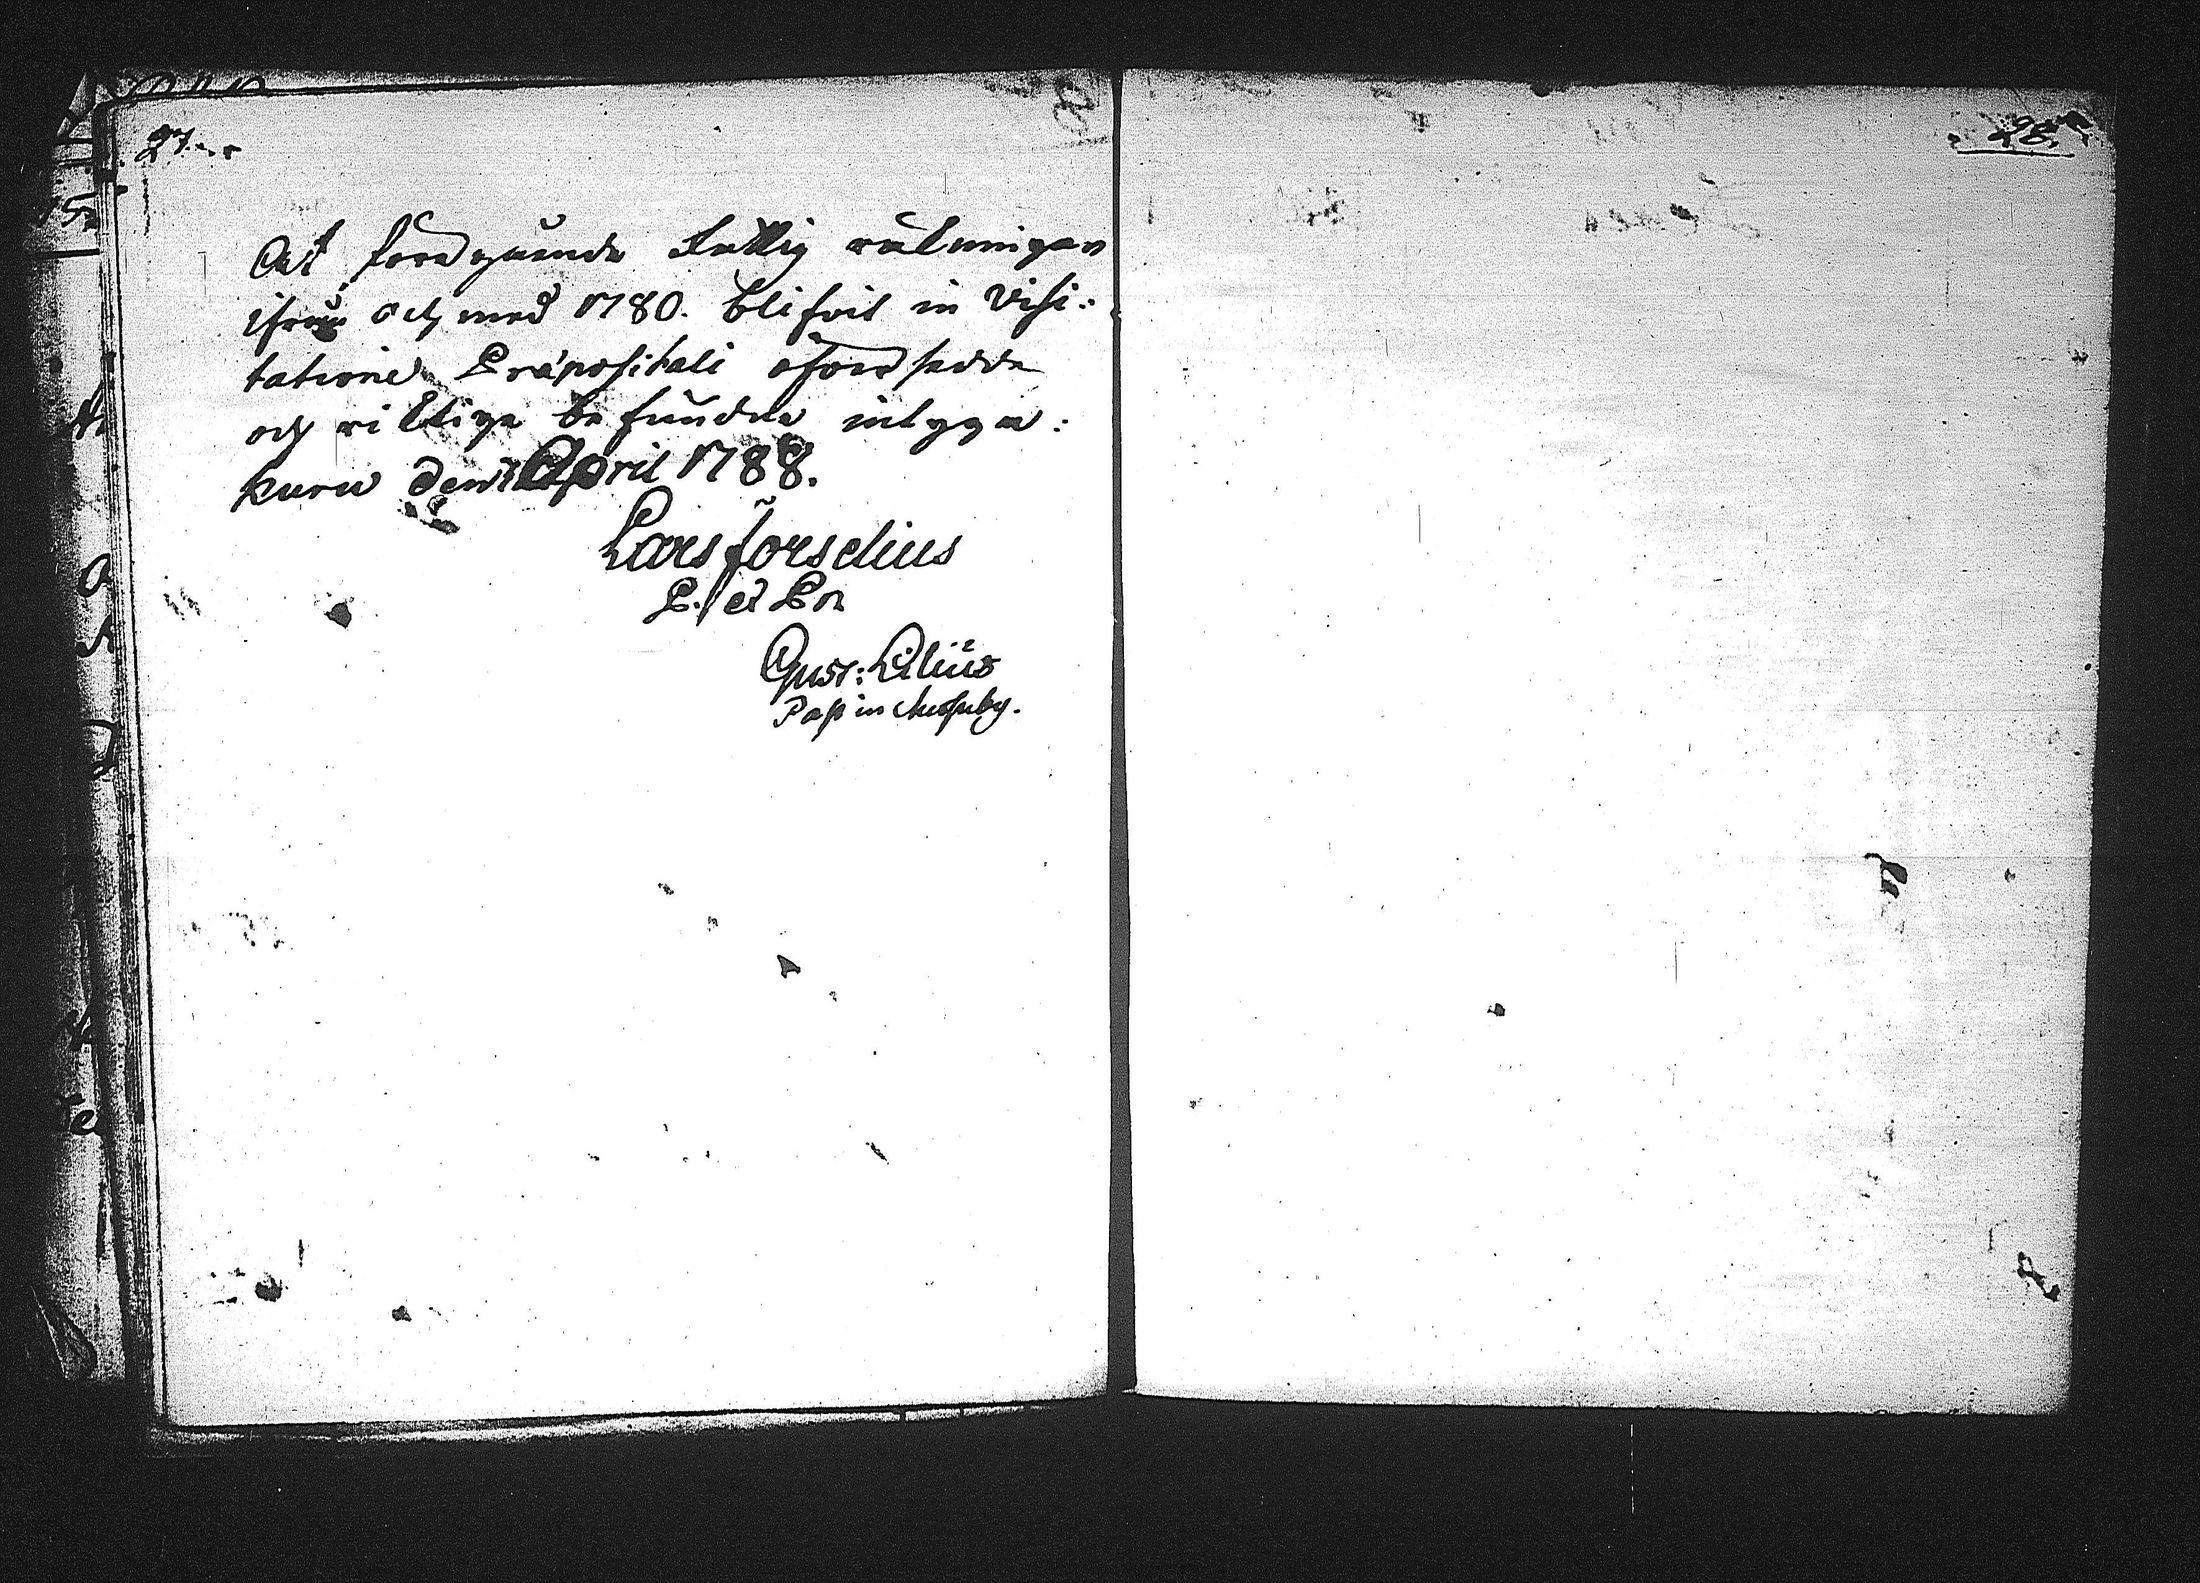 27.
28.
At föregående Fattig räkningar
ifrån och med 1780. blifvit in Visi:
tatione Præpositali öfversedde
och richtige befundne intyga:
Kuru den April 1788.
Lars Forselius
P. et Pr
Gust: Lilius
Past in Messuby.